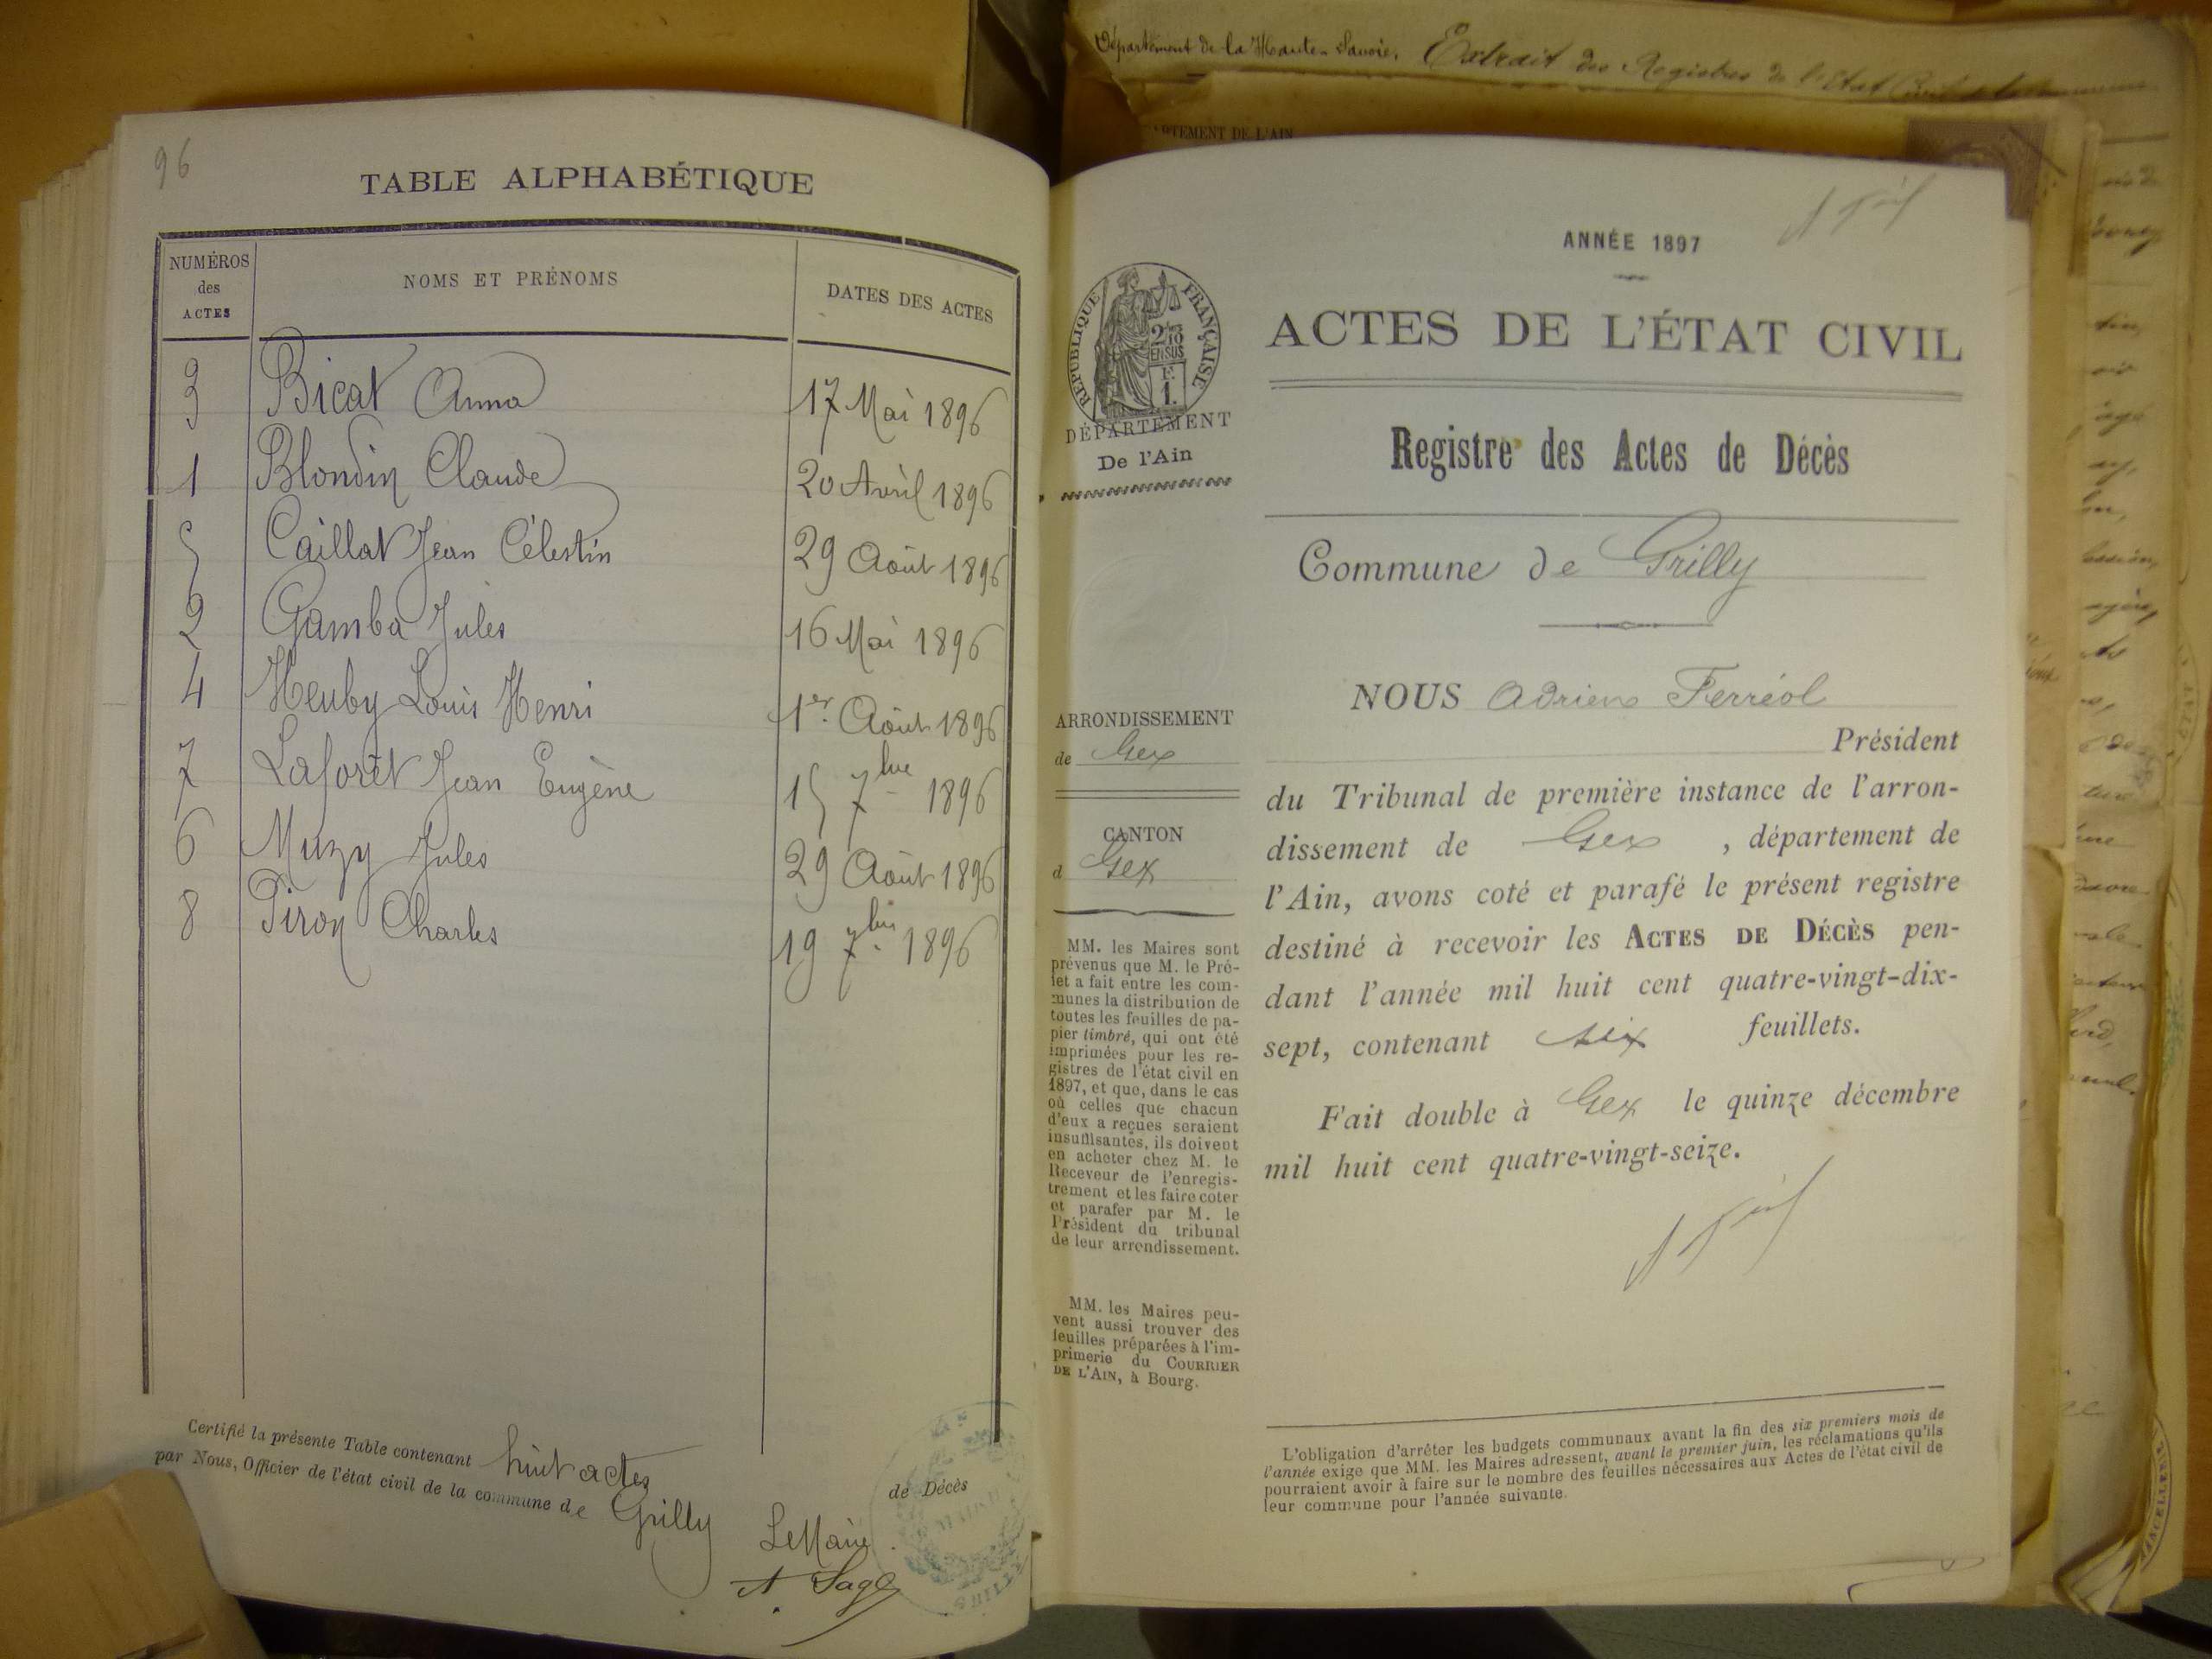 96
TABLE ALPHABÉTIQUE
NUMÉROS des ACTES NOMS ET PRÉNOMS DATES DES ACTES
3 Bicat Anna 17 Mai 1896
1 Blondin Claude 20 Avril 1896
5 Caillat Jean Célestin 29 Août 1896
2 Gamba Jules 16 Mai 1896
4 Heuby Louis Henri 1er Août 1896
7 Laforêt Jean Eugène 15 7bre 1896
6 Muzy Jules 29 Août 1896
8 Piron Charles 19 7bre 1896
Certifié la présente Table contenant huit actes de Décès
par Nous, Officier de l'état civil de la commune de Grilly
Le Maire
A Sage
Département de la Haute-Savoie. Extrait des Registres de l'Etat Civil
RTEMENT DE L'AIN
ANNÉE 1897
ACTES DE L'ÉTAT CIVIL
RÉPUBLIQUE FRANÇAISE
2/10
EN SUS
F.
1.
DÉPARTEMENT
De l'Ain
Registre des Actes de Décès
Commune de Grilly
ARRONDISSEMENT
de Gex
CANTON
d Gex
MM. les Maires sont
prévenus que M. le Pré-
fet a fait entre les com-
munes la distribution de
toutes les feuilles de pa-
pier timbré, qui ont été
imprimées pour les re-
gistres de l'état civil en
1897, et que, dans le cas
où celles que chacun
d'eux a reçues seraient
insuffisantes, ils doivent
en acheter chez M. le
Receveur de l'enregis-
trement et les faire coter
et parafer par M. le
Président du tribunal
de leur arrondissement.
MM. les Maires peu-
vent aussi trouver des
feuilles préparées à l'im-
primerie du COURRIER
DE L'AIN, à Bourg.
NOUS Adrien Ferréol
Président
du Tribunal de première instance de l'arron-
dissement de Gex , département de
l'Ain, avons coté et parafé le présent registre
destiné à recevoir les ACTES DE DÉCÈS pen-
dant l'année mil huit cent quatre-vingt-dix-
sept, contenant six feuillets.
Fait double à Gex le quinze décembre
mil huit cent quatre-vingt-seize.
L'obligation d'arrêter les budgets communaux avant la fin des six premiers mois de
l'année exige que MM. les Maires adressent, avant le premier juin, les réclamations qu'ils
pourraient avoir à faire sur le nombre des feuilles nécessaires aux Actes de l'état civil de
leur commune pour l'année suivante.